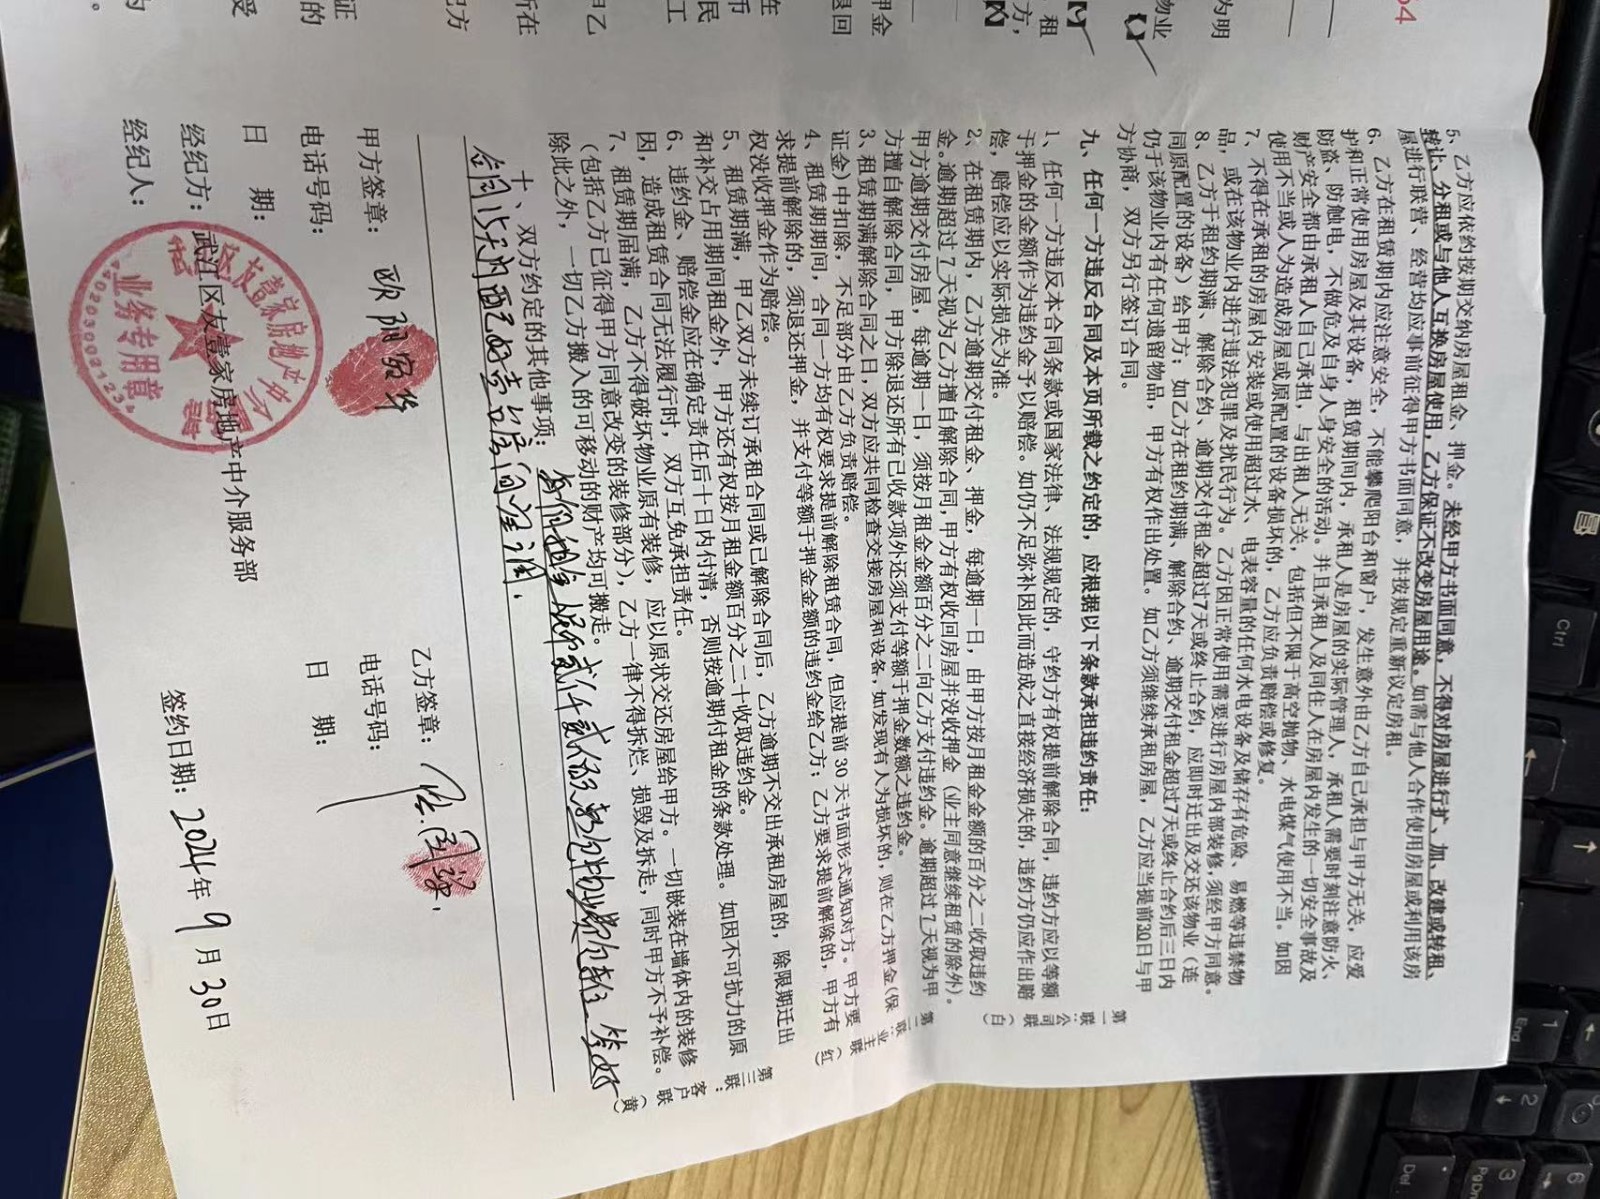 5、乙方应依约按期交纳房屋租金、押金。未经甲方书面同意，不得对房屋进行扩、加、改建或转租、
转让、分租或与他人互换房屋使用，乙方保证不改变房屋用途。如需与他人合作使用房屋或利用该房
屋进行联营、经营均应事前征得甲方书面同意，并按规定重新议定房租。
6、乙方在租赁期内应注意安全，不能攀爬阳台和窗户，发生意外由乙方自己承担与甲方无关，应爱
护和正常使用房屋及其设备，租赁期间内，承租人是房屋的实际管理人，承租人需要时刻注意防火、
防盗、防触电，不做危及自身人身安全的活动。并且承租人及同住人在房屋内发生的一切安全事故及
财产安全都由承租人自己承担，与出租人无关，包括但不限于高空抛物、水电煤气使用不当。如因
使用不当或人为造成房屋或原配置的设备损坏的，乙方应负责赔偿或修复。
7、不得在承租的房屋内安装或使用超过水、电表容量的任何水电设备及储存有危险、易燃等违禁物
品，或在该物业内进行违法犯罪及扰民行为。乙方因正常使用需要进行房屋内部装修，须经甲方同意。
8、乙方于租约期满、解除合约、逾期交付租金超过7天或终止合约，应即时迁出及交还该物业（连
同原配置的设备）给甲方；如乙方在租约期满、解除合约、逾期交付租金超过7天或终止合约后三日内
仍于该物业内有任何遗留物品，甲方有权作出处置。如乙方须继续承租房屋，乙方应当提前30日与甲
方协商，双方另行签订合同。
九、任何一方违反合同及本页所载之约定的，应根据以下条款承担违约责任：
1、任何一方违反本合同条款或国家法律、法规规定的，守约方有权提前解除合同，违约方应以等额
于押金的金额作为违约金予以赔偿。如仍不足弥补因此而造成之直接经济损失的，违约方仍应作出赔
偿，赔偿应以实际损失为准。
2、在租赁期内，乙方逾期交付租金、押金，每逾期一日，由甲方按月租金金额的百分之二收取违约
金。逾期超过7天视为乙方擅自解除合同，甲方有权收回房屋并没收押金（业主同意继续租赁的除外）。
甲方逾期交付房屋，每逾期一日，须按月租金金额百分之二向乙方支付违约金。逾期超过7天视为甲
方擅自解除合同，甲方除退还所有已收款项外还须支付等额于押金数额之违约金。
3、租赁期满解除合同之日，双方应共同检查交接房屋和设备，如发现有人为损坏的，则在乙方押金（保
证金）中扣除，不足部分由乙方负责赔偿。
4、租赁期间，合同一方均有权要求提前解除租赁合同，但应提前30天书面形式通知对方。甲方要
求提前解除的，须退还押金，并支付等额于押金金额的违约金给乙方；乙方要求提前解除的，甲方有
权没收押金作为赔偿。
5、租赁期满，甲乙双方未续订承租合同或已解除合同后，乙方逾期不交出承租房屋的，除限期迁出
和补交占用期间租金外，甲方还有权按月租金额百分之二十收取违约金。
6、违约金、赔偿金应在确定责任后十日内付清，否则按逾期付租金的条款处理。如因不可抗力的原
因，造成租赁合同无法履行时，双方互免承担责任。
7、租赁期届满，乙方不得破坏物业原有装修，应以原状交还房屋给甲方。一切嵌装在墙体内的装修
（包括乙方已征得甲方同意改变的装修部分），乙方一律不得拆烂、损毁及拆走，同时甲方不予补偿。
除此之外，一切乙方搬入的可移动的财产均可搬走。
十、双方约定的其他事项：
甲方签章：
电话号码：
日 期：
经纪方：武江区友壹家房地产中介服务部
经纪人：
乙方签章：
电话号码：
日 期：
签约日期：2024年9月30日
第一联：公司联（白）
第二联：业主联（红）
第三联：客户联（黄）
业务专用章
Ctrl
1
End
2
3
PgDn
Del
6